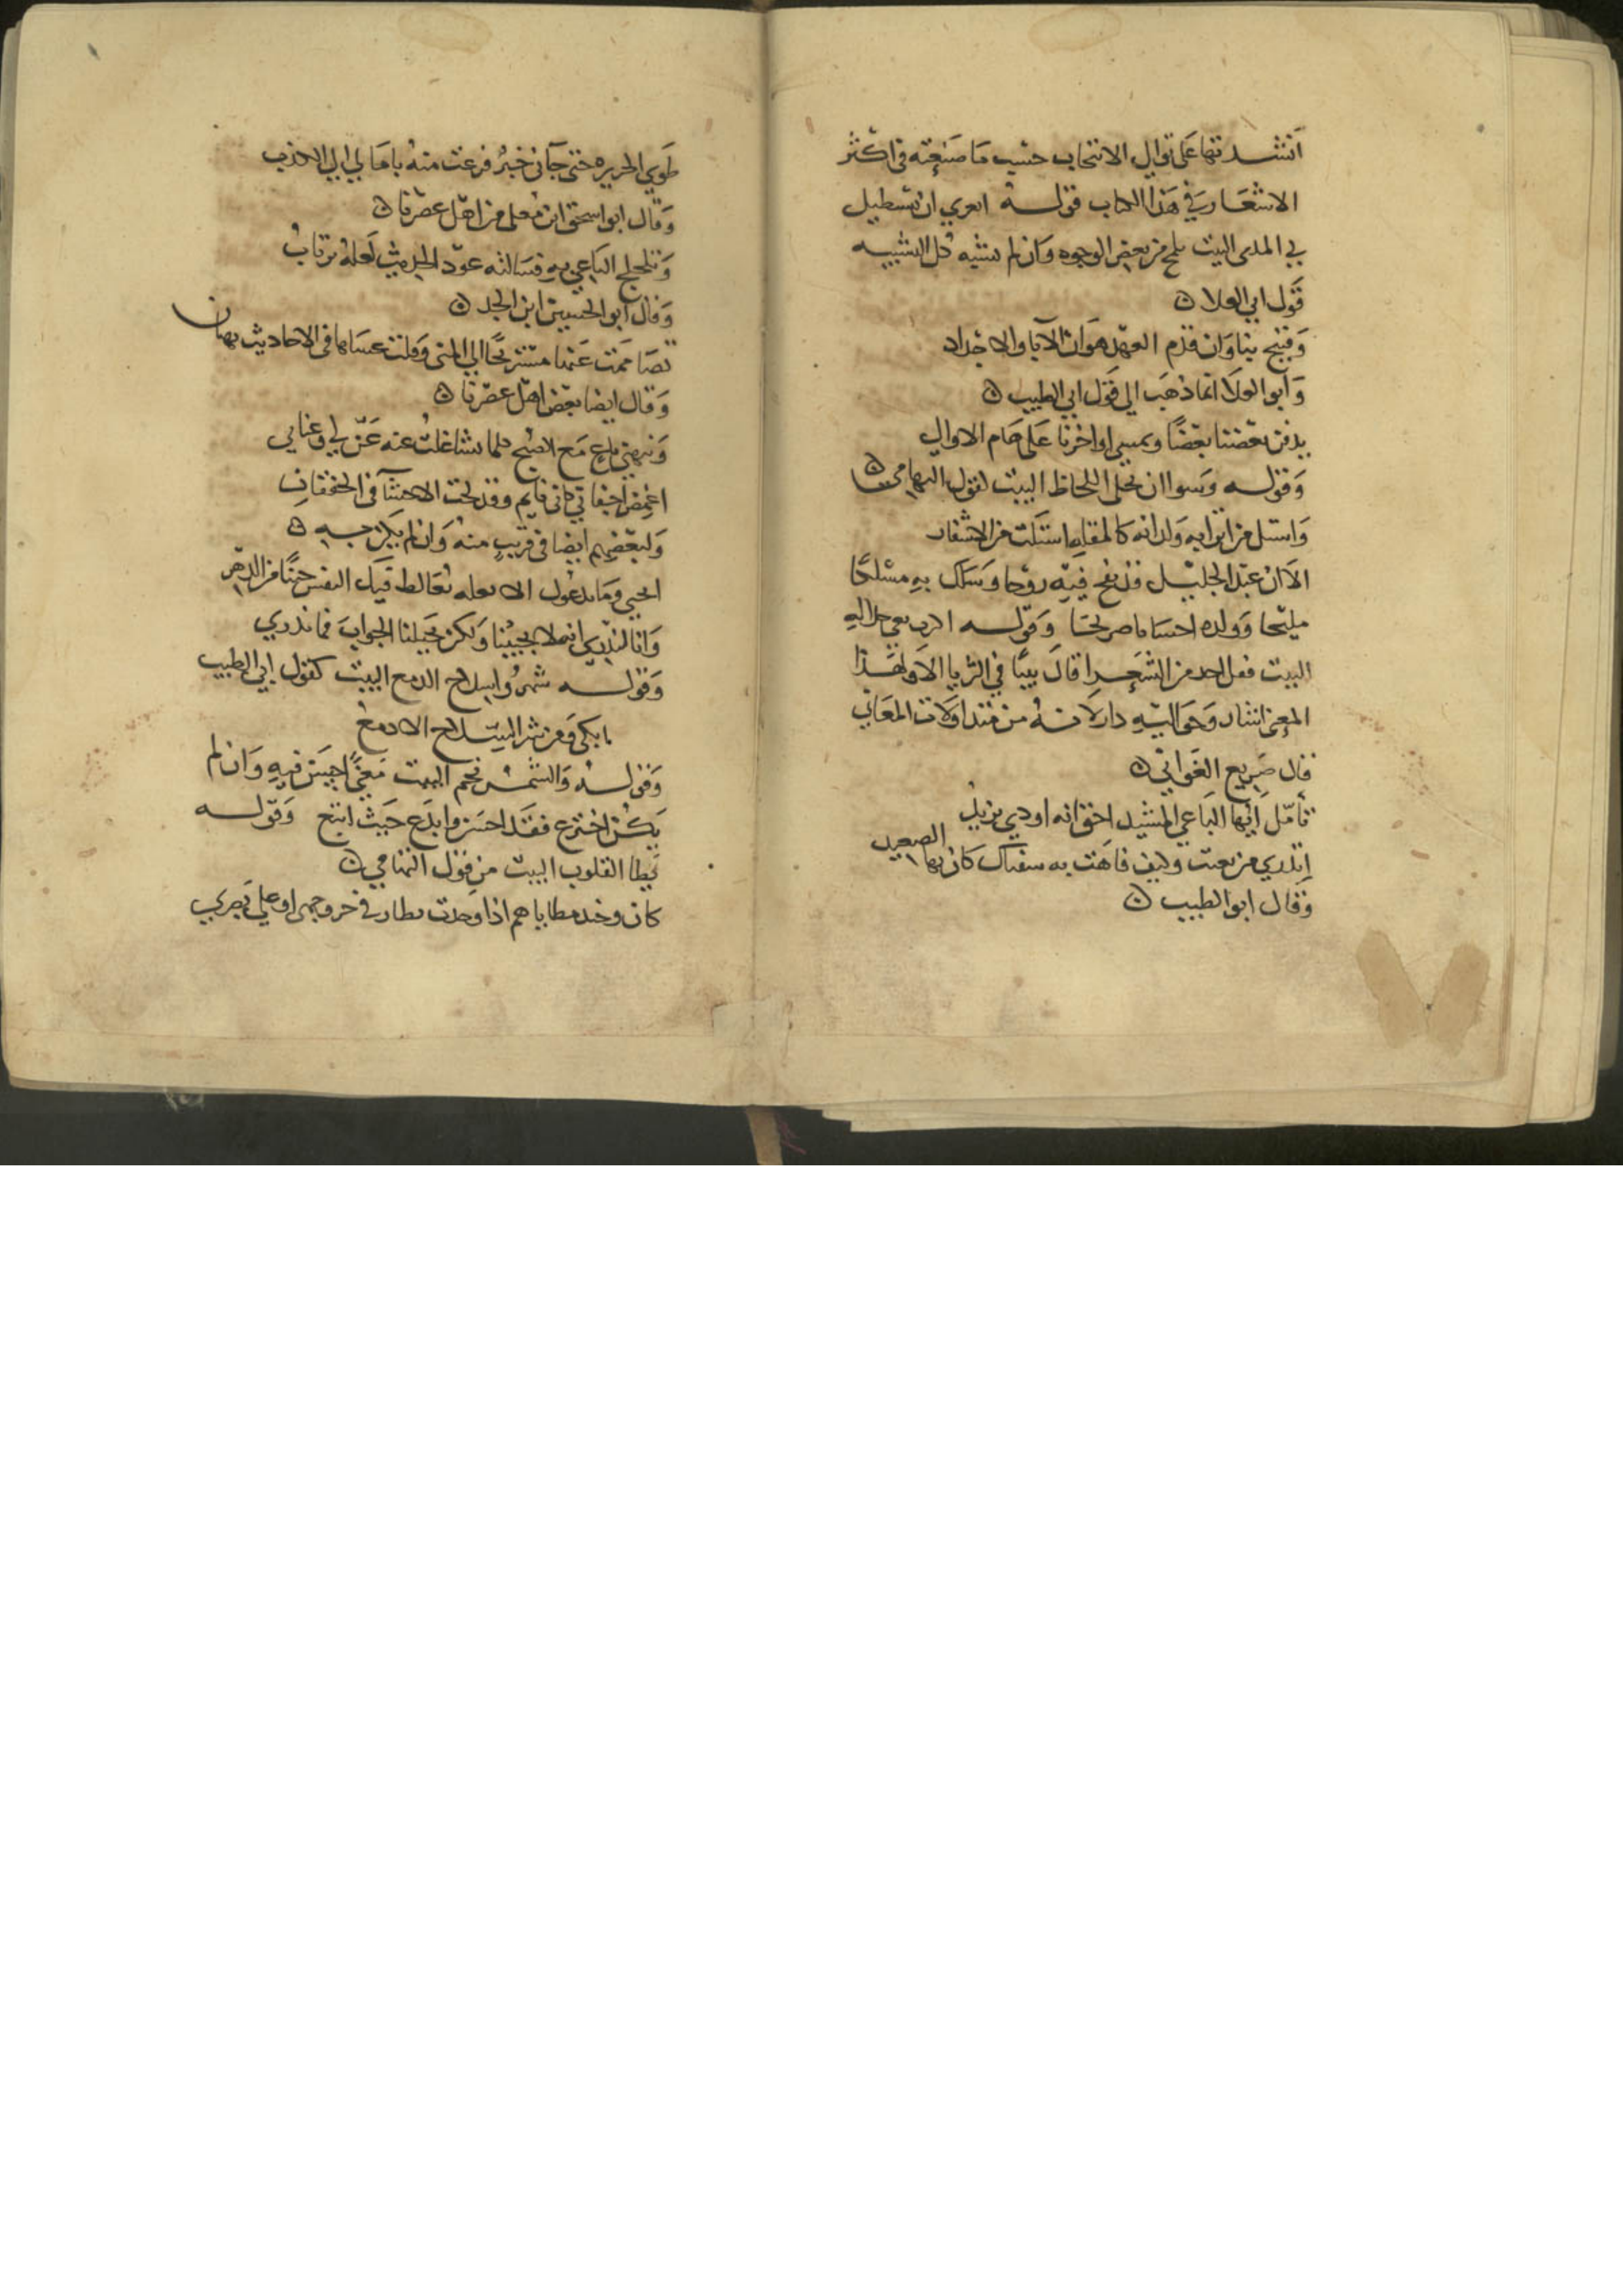 انشدتها على توالي الانتخاب حسب ما صنعته في اكثر
الاشعار في هذا الكتاب قوله لعمري ان تستطيل
بي المدى البيت يلمح من بعض الوجوه وان لم يشبه كل الشبيه
قول ابي العلا
وقبيح بنا وان قدم العهد هوان الآبا والاجداد
وابو العلا انما ذهب الى قول ابي الطيب
يدفن بعضنا بعضا ويمسي اواخرنا على هام الاوالي
وقوله وسوا ان تجلى اللحاظ البيت كقول التهامي
واستل من اترابه ولداته كالمقلة استلت من الاشفار
الا ان عبد الجليل قد نفخ فيه روحا وسلك به مسلكا
مليحا وولده احسانا صريحا وقوله
البيت فقل احد من الشعرا قال بيتا في الرثا الا ولهذا
المعنى اشار وحواليه دار لانه من متداولات المعاني
قال صريع الغواني
تأمل ايها الناعي المشيد احق انه اودي يزيد
اتدري من نعيت وكيف فاهت به شفتاك كان بها الصعيد
وقال ابو الطيب
طوي الجزيره حتى جآني خبر فزعت منه بامالي الى الكذب
وقال ابو اسحق ابن معلى من اهل عصرنا
وتلجلج الناعي به فسالته عود الحديث لعله يرتاب
وقال ابو الحسين ابن الجد
تصاممت عنها مستريحا الى المنى وقلت عساها في الاحاديث بهتان
وقال ايضا بعض اهل عصرنا
ونبهني ناع مع الصبح كلما تشاغلت عنه عن لي وعناني
اغمض اجفاني كاني نايم وقد لجت الاحشآ في الخفقان
ولبعضهم ايضا في قريب منه وان لم يكن به
وانا لندري انها لا تجيبنا ولكن تخيلنا الجواب فما ندري
وقوله شمروا سلاح الدمع البيت كقول ابي الطيب
يا بكى ومن شر السلاح الادمع
وقوله والشمس نجم البيت معنى احسن فيه وان لم
يكن اخترع فقد احسن وابدع حيث اتبع وقوله
تطا القلوب البيت من قول التهامي
كان وخد مطاياهم اذا وخدت يطا في حر وجهي او على بصري